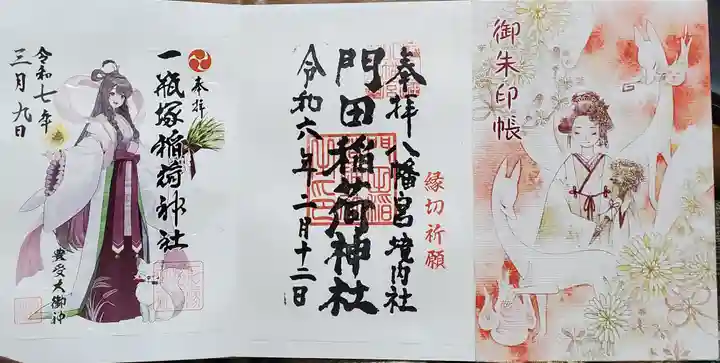 御朱印帳
奉拝 八幡宮境内社
縁切祈願
門田稲荷神社
令和六年二月十二日
奉拝
一瓶塚稲荷神社
豊受大御神
令和七年
三月九日